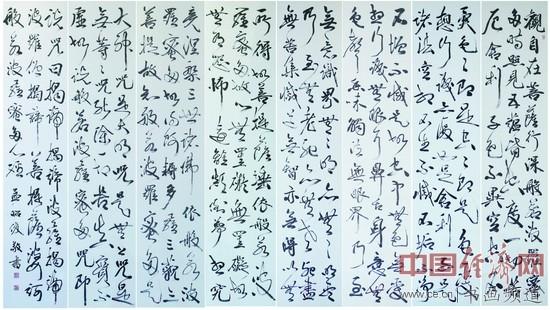 觀自在菩薩行深般若波羅蜜
多時照見五蘊皆空度一切苦
厄舍利子色不異空空不異
色色即是空空即是色受
想行識亦復如是舍利子是
諸法空相不生不滅不垢不淨
不增不減是故空中無色無受
想行識無眼耳鼻舌身意無
色聲香味觸法無眼界乃至無
意識界無無明亦無無明盡
乃至無老死亦無老死盡
無苦集滅道無智亦無得以無
所得故菩提薩埵依般若波
羅蜜多故心無罣礙無罣礙故
無有恐怖遠離顛倒夢想究
竟涅槃三世諸佛依般若波
羅蜜多故得阿耨多羅三藐三
菩提故知般若波羅蜜多是
大神咒是大明咒是無上咒是
無等等咒能除一切苦真實不
虛故說般若波羅蜜多咒即
說咒曰揭諦揭諦波羅揭諦
波羅僧揭諦菩提薩婆訶
般若波羅蜜多心經
敬書
中国经济网
www.ce.cn 书画频道